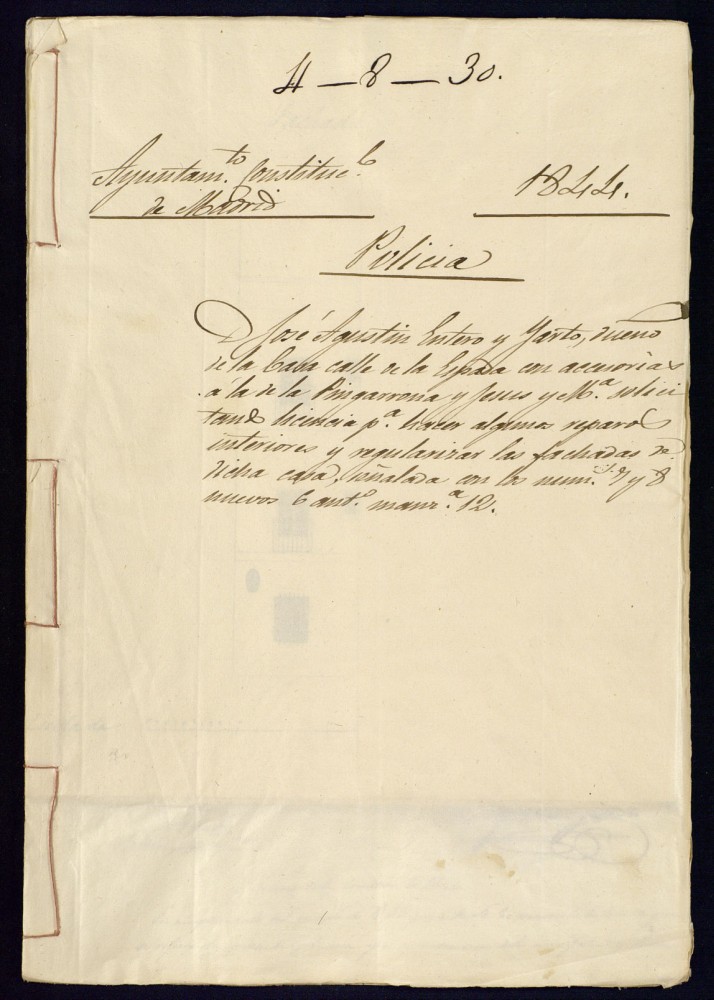 4-8-30.
Ayuntam.to Constituc.l
de Madrid
1844.
Policia
D. José Agustin Entero y Yarto, dueño
de la Casa calle de la Espada con accesorias
á la de la Pingarrona y Jesus y M.a solici
tand licencia p.a hacer algunos reparos
interiores y regularizar las fachadas de
dicha casa, señalada con los num.s 7 y 8
nuevos 6 ant.o manz.a 12.